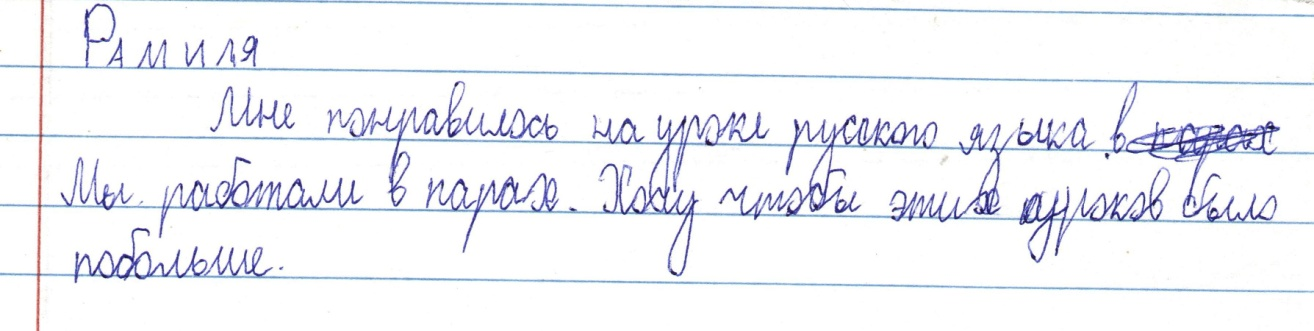 Рамиля
Мне понравилось на уроке русского языка. в
Мы работали в парах. Хочу чтобы этих уроков было
побольше.